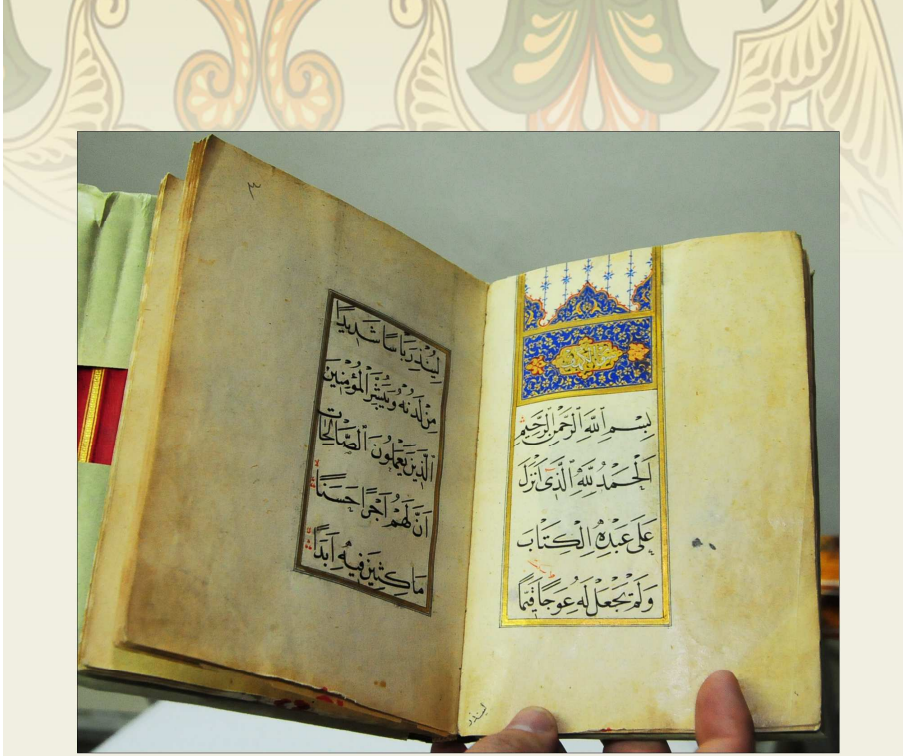 سورة الكهف
بِسْمِ اللّٰهِ الرَّحْمٰنِ الرَّحِيمِ
اَلْحَمْدُ لِلّٰهِ الَّذٖى اَنْزَلَ
عَلٰى عَبْدِهِ الْكِتَابَ
وَلَمْ يَجْعَلْ لَهُ عِوَجًا قَيِّمًا
لينذر
٣
لِيُنْذِرَ بَاْسًا شَدٖيدًا
مِنْ لَدُنْهُ وَيُبَشِّرَ الْمُؤْمِنٖينَ
الَّذٖينَ يَعْمَلُونَ الصَّالِحَاتِ
اَنَّ لَهُمْ اَجْرًا حَسَنًا
مَاكِثٖينَ فٖيهِ اَبَدًا